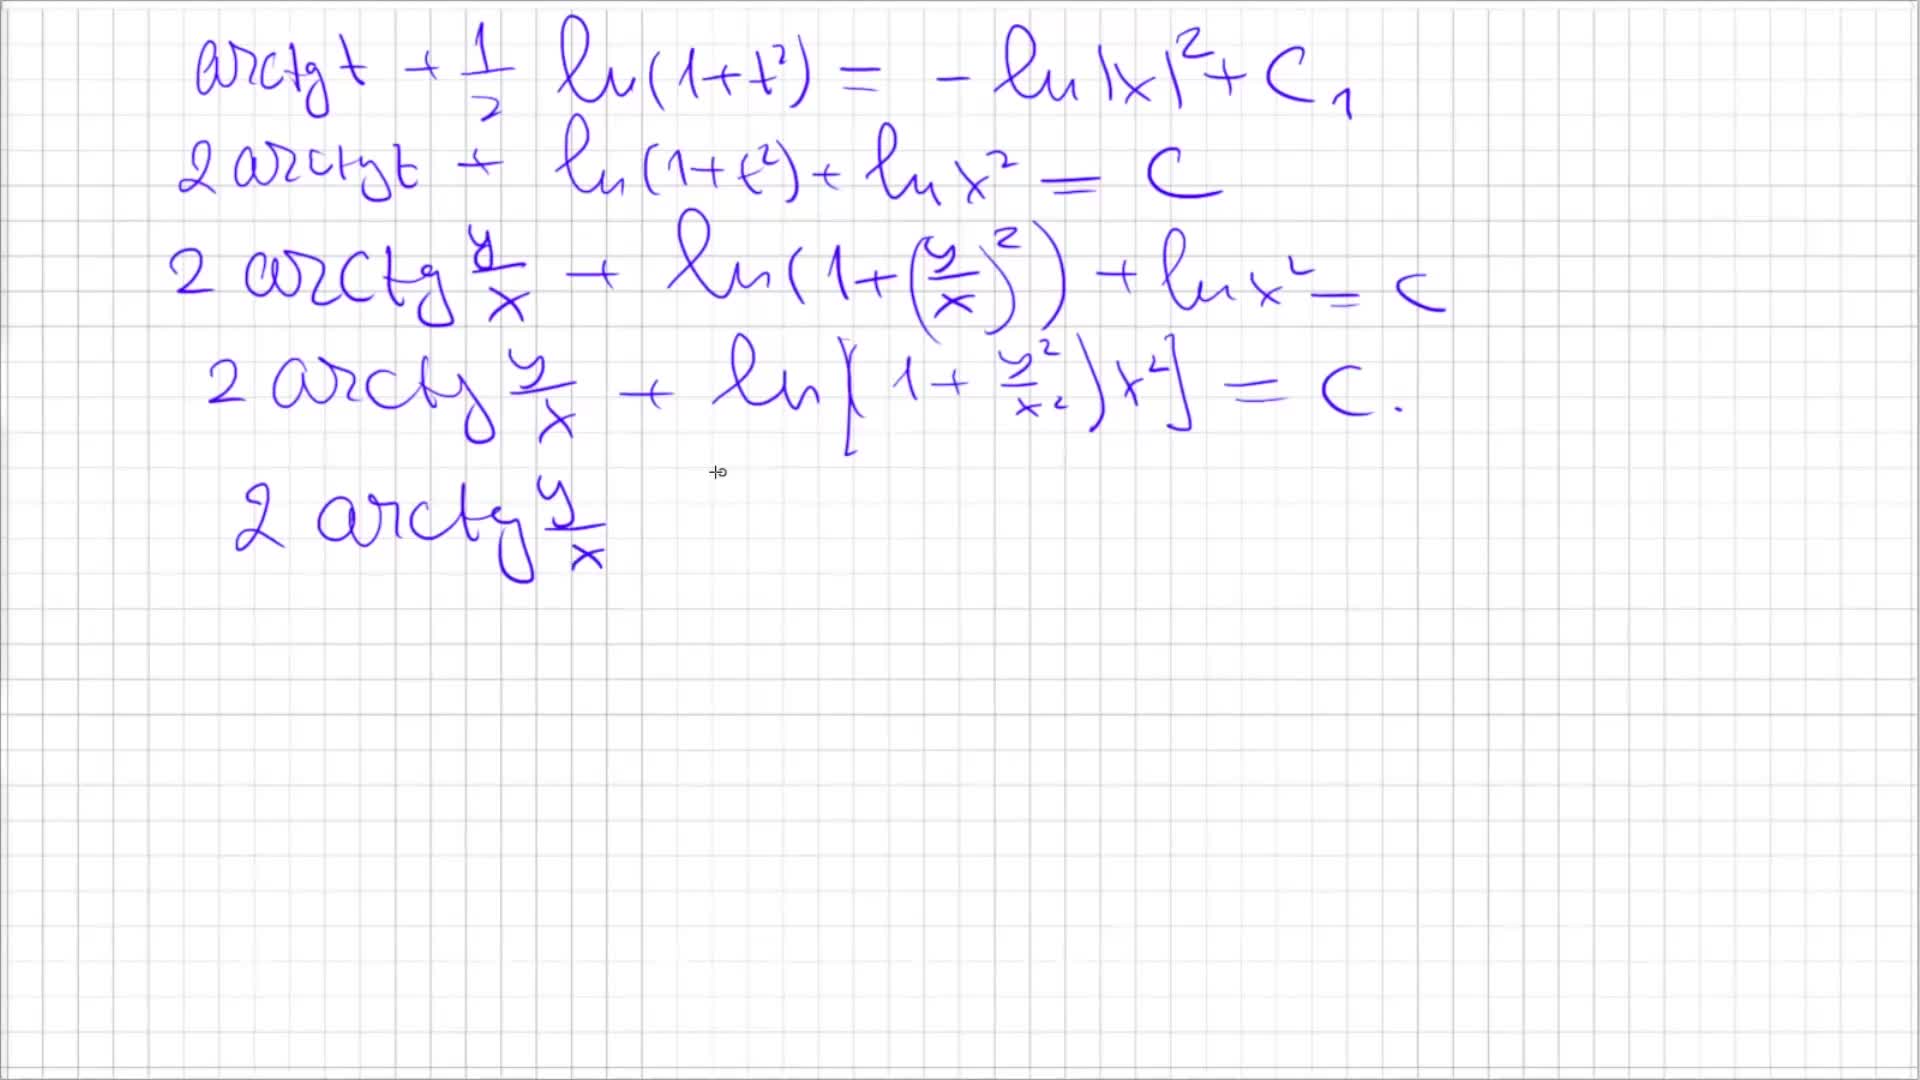 arctg t + 1/2 ln(1+t²) = - ln|x|² + C₁
2 arctg t + ln(1+t²) + ln x² = C
2 arctg y/x + ln(1+(y/x)²) + ln x² = C
2 arctg y/x + ln[(1 + y²/x²)x²] = C.
2 arctg y/x